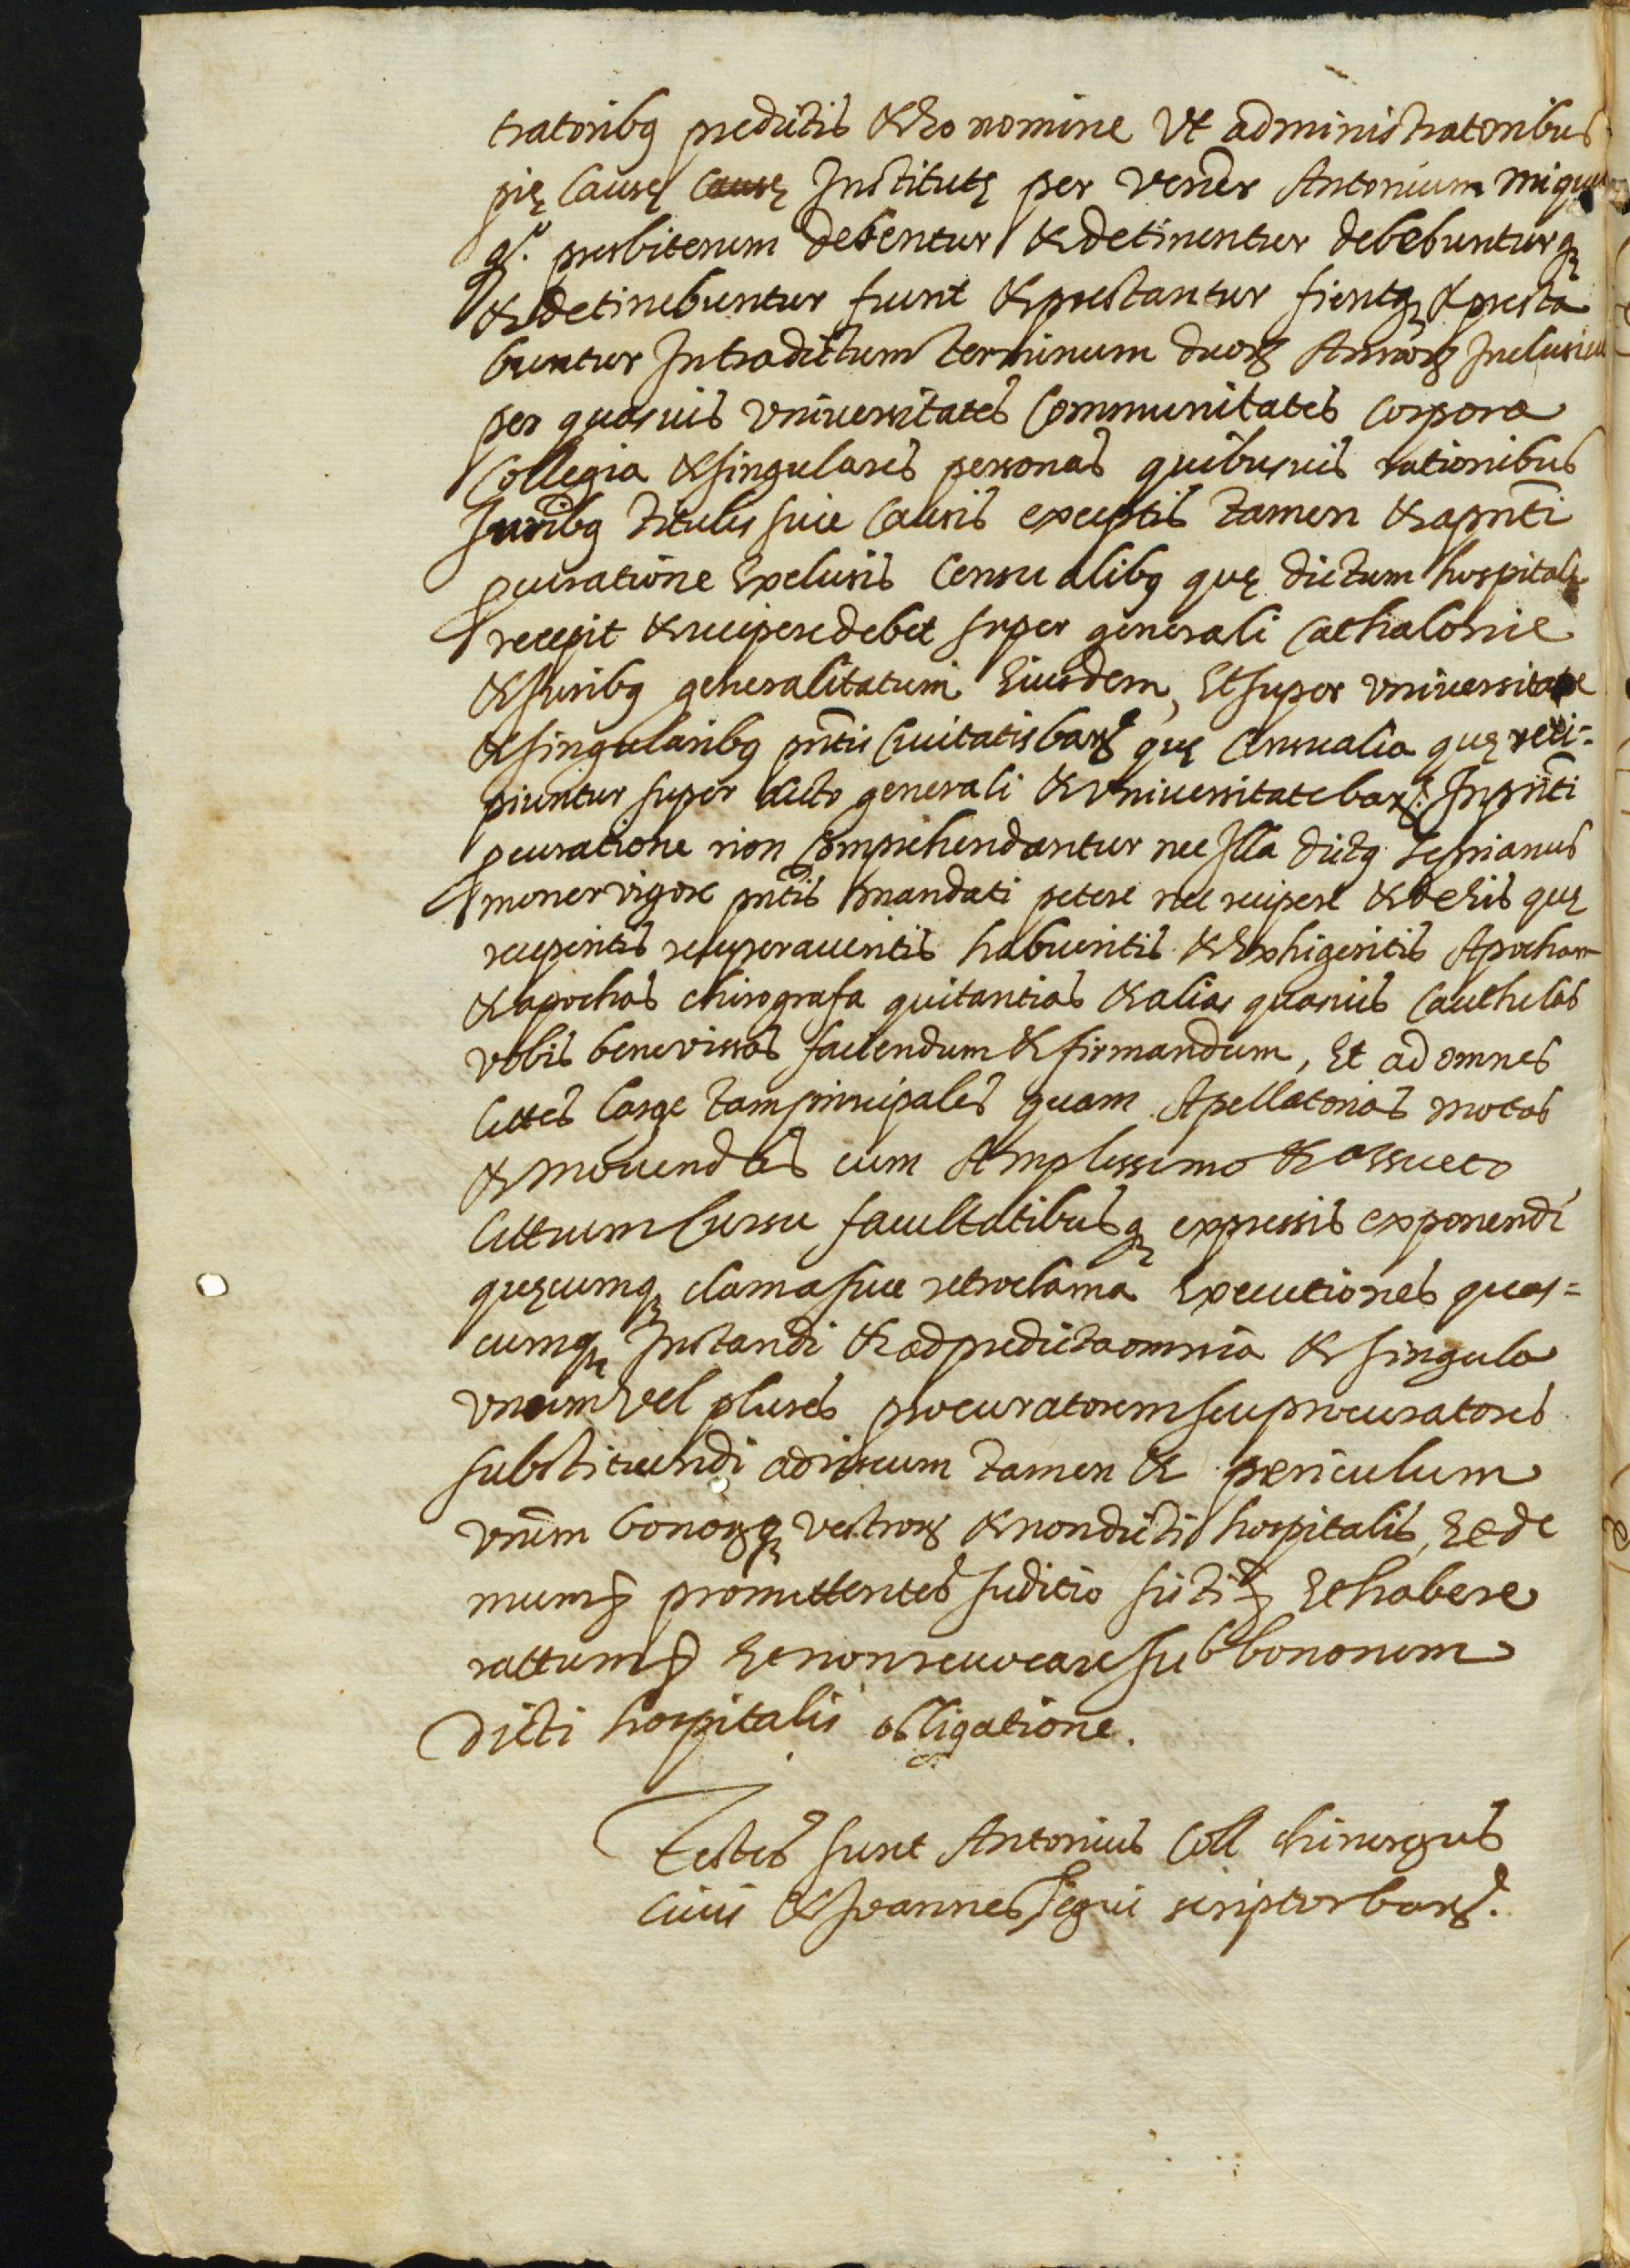 tratoribq predictis & Eo nomine Vt administratoribus
pię Causę Institutę per vener Antonium miquel
qº. presbiterum debentur & detinentur debebunturq
& detinebuntur fiunt & prestantur fientq & presta
buntur Intra dictum terminum duorꝝ Annorꝝ Inclusiue
per quasuis vniuersitates Communitates Corpora
Collegia & singulares personas quibusuis rationibus
Juribq titulis siue Causis exceptis tamen & a pn̄ti
pcuratione Exclusis Censualibq quę dictum hospitale
recepit & recipere debet super generali Cathalonie
& Juribq generalitatum Eiusdem, Et super vniuersitate
& singularibq pn̄tis Ciuitatis barꝝ quę Censualia quę reci=
piuntur super dicto generali & vniuersitate barꝝ. In pn̄ti
pcuratione non Comprehendantur nec Illa dictq
moner vigore pn̄tis mandati petere nec recipere & de Eis quę
receperitis recuperaueritis habueritis & Exhigeritis Apocham
& apochas chirografa quitantias & alias quasuis Cauthelas
vobis benevissas faciendum & firmandum, Et ad omnes
littes large tam principales quam Apellatorias motas
& mouendas cum Amplissimo & assueto
littium Cursu facultatibusq expressis exponendi
quęcumq clama siue retroclama Executiones quas=
cumq Instandi & ad predicta omnia & singula
vnum vel plures procuratorem seu procuratores
substituendi ad riscum tamen & periculum
vr̄um bonorꝝq vestrorꝝ & non dicti hospitalis, Et de
mum promittentes Juditio sisti Et habere
rattum Et non reuocare sub bonorum
Dicti hospitalis obligatione.
Testes sunt Antonius Coll chirurgus
Ciuis & Joannes Segui scriptor barꝝ.